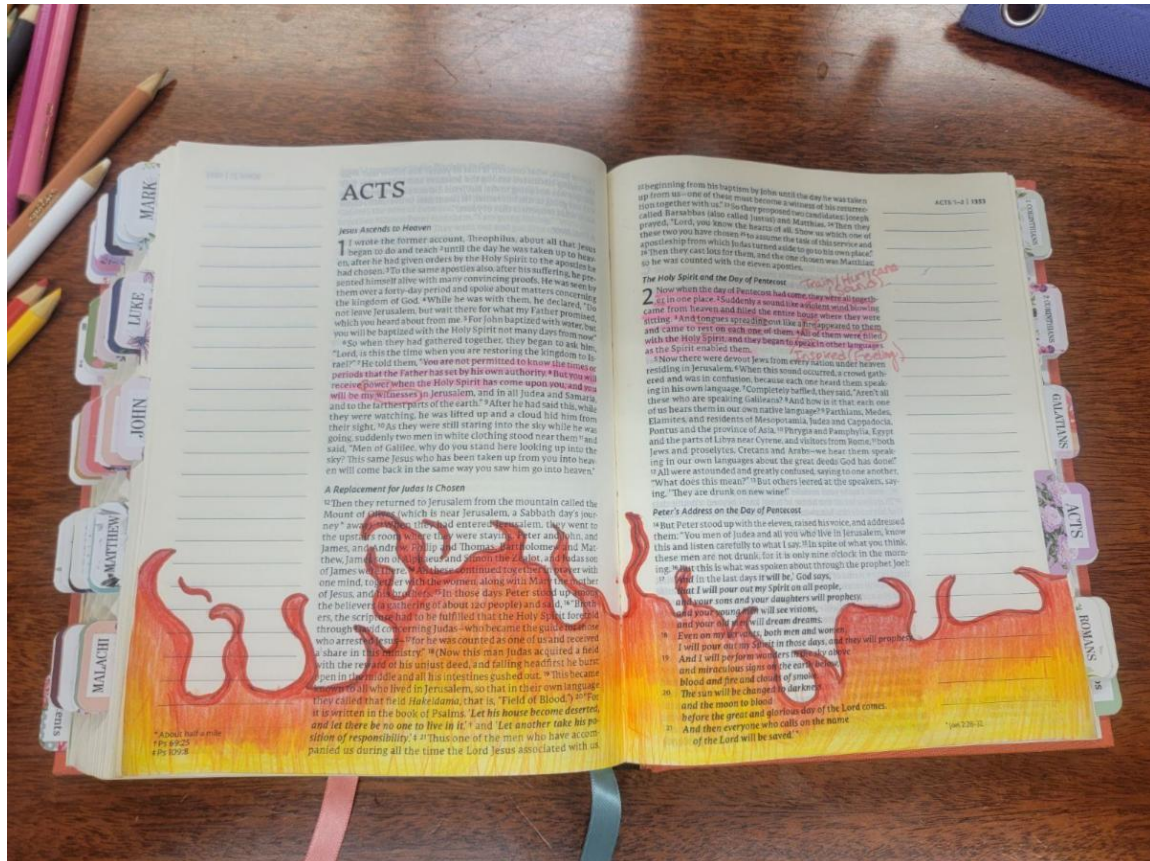 MARK
LUKE
JOHN
MATTHEW
MALACHI
ACTS
Jesus Ascends to Heaven
1 I wrote the former account, Theophilus, about all that Jesus
began to do and teach 2 until the day he was taken up to heav-
en, after he had given orders by the Holy Spirit to the apostles he
had chosen. 3 To the same apostles also, after his suffering, he pre-
sented himself alive with many convincing proofs. He was seen by
them over a forty-day period and spoke about matters concerning
the kingdom of God. 4 While he was with them, he declared, "Do
not leave Jerusalem, but wait there for what my Father promised,
which you heard about from me. 5 For John baptized with water, but
you will be baptized with the Holy Spirit not many days from now."
6 So when they had gathered together, they began to ask him,
"Lord, is this the time when you are restoring the kingdom to Is-
rael?" 7 He told them, "You are not permitted to know the times or
periods that the Father has set by his own authority. 8 But you will
receive power when the Holy Spirit has come upon you, and you
will be my witnesses in Jerusalem, and in all Judea and Samaria,
and to the farthest parts of the earth." 9 After he had said this, while
they were watching, he was lifted up and a cloud hid him from
their sight. 10 As they were still staring into the sky while he was
going, suddenly two men in white clothing stood near them 11 and
said, "Men of Galilee, why do you stand here looking up into the
sky? This same Jesus who has been taken up from you into heav-
en will come back in the same way you saw him go into heaven."
A Replacement for Judas Is Chosen
12 Then they returned to Jerusalem from the mountain called the
Mount of Olives (which is near Jerusalem, a Sabbath day's jour-
ney away). 13 When they had entered Jerusalem, they went to
the upstairs room where they were staying. Peter and John, and
James, and Andrew, Philip and Thomas, Bartholomew and Mat-
thew, James son of Alphaeus and Simon the Zealot, and Judas son
of James were there. 14 All these continued together in prayer with
one mind, together with the women, along with Mary the mother
of Jesus, and his brothers. 15 In those days Peter stood up among
the believers (a gathering of about 120 people) and said, 16 "Broth-
ers, the scripture had to be fulfilled that the Holy Spirit foretold
through David concerning Judas—who became the guide for those
who arrested Jesus— 17 for he was counted as one of us and received
a share in this ministry." 18 (Now this man Judas acquired a field
with the reward of his unjust deed, and falling headfirst he burst
open in the middle and all his intestines gushed out. 19 This became
known to all who lived in Jerusalem, so that in their own language
they called that field Hakeldama, that is, "Field of Blood.") 20 "For
it is written in the book of Psalms, 'Let his house become deserted,
and let there be no one to live in it,' and 'Let another take his po-
sition of responsibility.' 21 Thus one of the men who have accom-
panied us during all the time the Lord Jesus associated with us,
About half a mile
Ps 69:25
Ps 109:8
ACTS 1–2 | 1353
22 beginning from his baptism by John until the day he was taken
up from us—one of these must become a witness of his resurrec-
tion together with us." 23 So they proposed two candidates: Joseph
called Barsabbas (also called Justus) and Matthias. 24 Then they
prayed, "Lord, you know the hearts of all. Show us which one of
these two you have chosen 25 to assume the task of this service and
apostleship from which Judas turned aside to go to his own place."
26 Then they cast lots for them, and the one chosen was Matthias;
so he was counted with the eleven apostles.
The Holy Spirit and the Day of Pentecost
Train/Hurricane
(Sound)
2 Now when the day of Pentecost had come, they were all togeth-
er in one place. 2 Suddenly a sound like a violent wind blowing
came from heaven and filled the entire house where they were
sitting. 3 And tongues spreading out like a fire appeared to them
and came to rest on each one of them. 4 All of them were filled
with the Holy Spirit, and they began to speak in other languages
as the Spirit enabled them.
Inspired (Feeling)
5 Now there were devout Jews from every nation under heaven
residing in Jerusalem. 6 When this sound occurred, a crowd gath-
ered and was in confusion, because each one heard them speak-
ing in his own language. 7 Completely baffled, they said, "Aren't all
these who are speaking Galileans? 8 And how is it that each one
of us hears them in our own native language? 9 Parthians, Medes,
Elamites, and residents of Mesopotamia, Judea and Cappadocia,
Pontus and the province of Asia, 10 Phrygia and Pamphylia, Egypt
and the parts of Libya near Cyrene, and visitors from Rome, 11 both
Jews and proselytes, Cretans and Arabs—we hear them speak-
ing in our own languages about the great deeds God has done!"
12 All were astounded and greatly confused, saying to one another,
"What does this mean?" 13 But others jeered at the speakers, say-
ing, "They are drunk on new wine!"
Peter's Address on the Day of Pentecost
14 But Peter stood up with the eleven, raised his voice, and addressed
them: "You men of Judea and all you who live in Jerusalem, know
this and listen carefully to what I say. 15 In spite of what you think,
these men are not drunk, for it is only nine o'clock in the morn-
ing. 16 But this is what was spoken about through the prophet Joel:
17 'And in the last days it will be,' God says,
'that I will pour out my Spirit on all people,
and your sons and your daughters will prophesy,
and your young men will see visions,
and your old men will dream dreams.
18 Even on my servants, both men and women,
I will pour out my Spirit in those days, and they will prophesy.
19 And I will perform wonders in the sky above
and miraculous signs on the earth below,
blood and fire and clouds of smoke.
20 The sun will be changed to darkness
and the moon to blood
before the great and glorious day of the Lord comes.
21 And then everyone who calls on the name
of the Lord will be saved.'
Joel 2:28-32
1 CORINTHIANS
2 CORINTHIANS
GALATIANS
ACTS
ROMANS